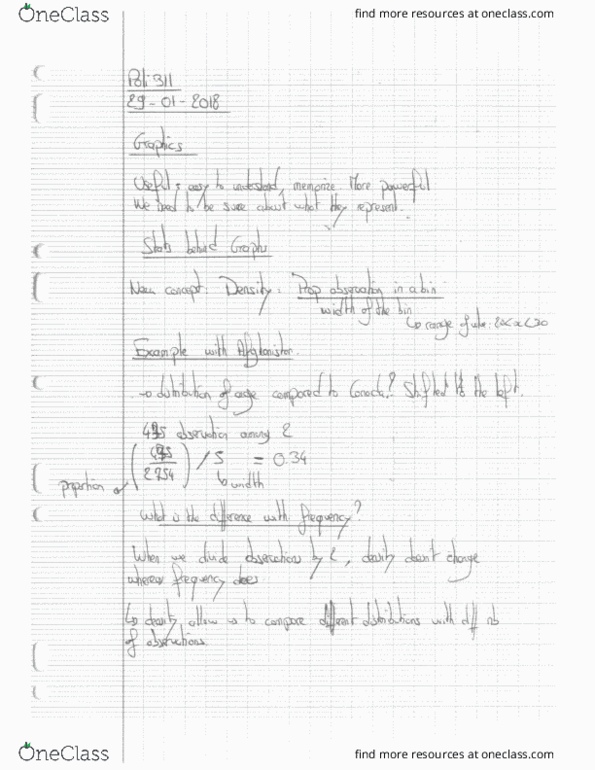 OneClass
find more resources at oneclass.com
Poli 311
29-01-2018
Graphics
Useful: easy to understand, memorize. More powerful
We need to be sure about what they represent.
Stats behind Graphs
New concept: Density: Prop observation in a bin
width of the bin
↳ range of
Example with Afghanistan.
→ distribution of age compared to Canada? Shifted to the left.
observation among
2754 / 5 = 0.34
proportion
↳ width
What is the difference with frequency?
When we divide observations by, density doesn't change
whereas frequency does
↳ density allow us to compare different distributions with diff nb
of observations.
OneClass
find more resources at oneclass.com